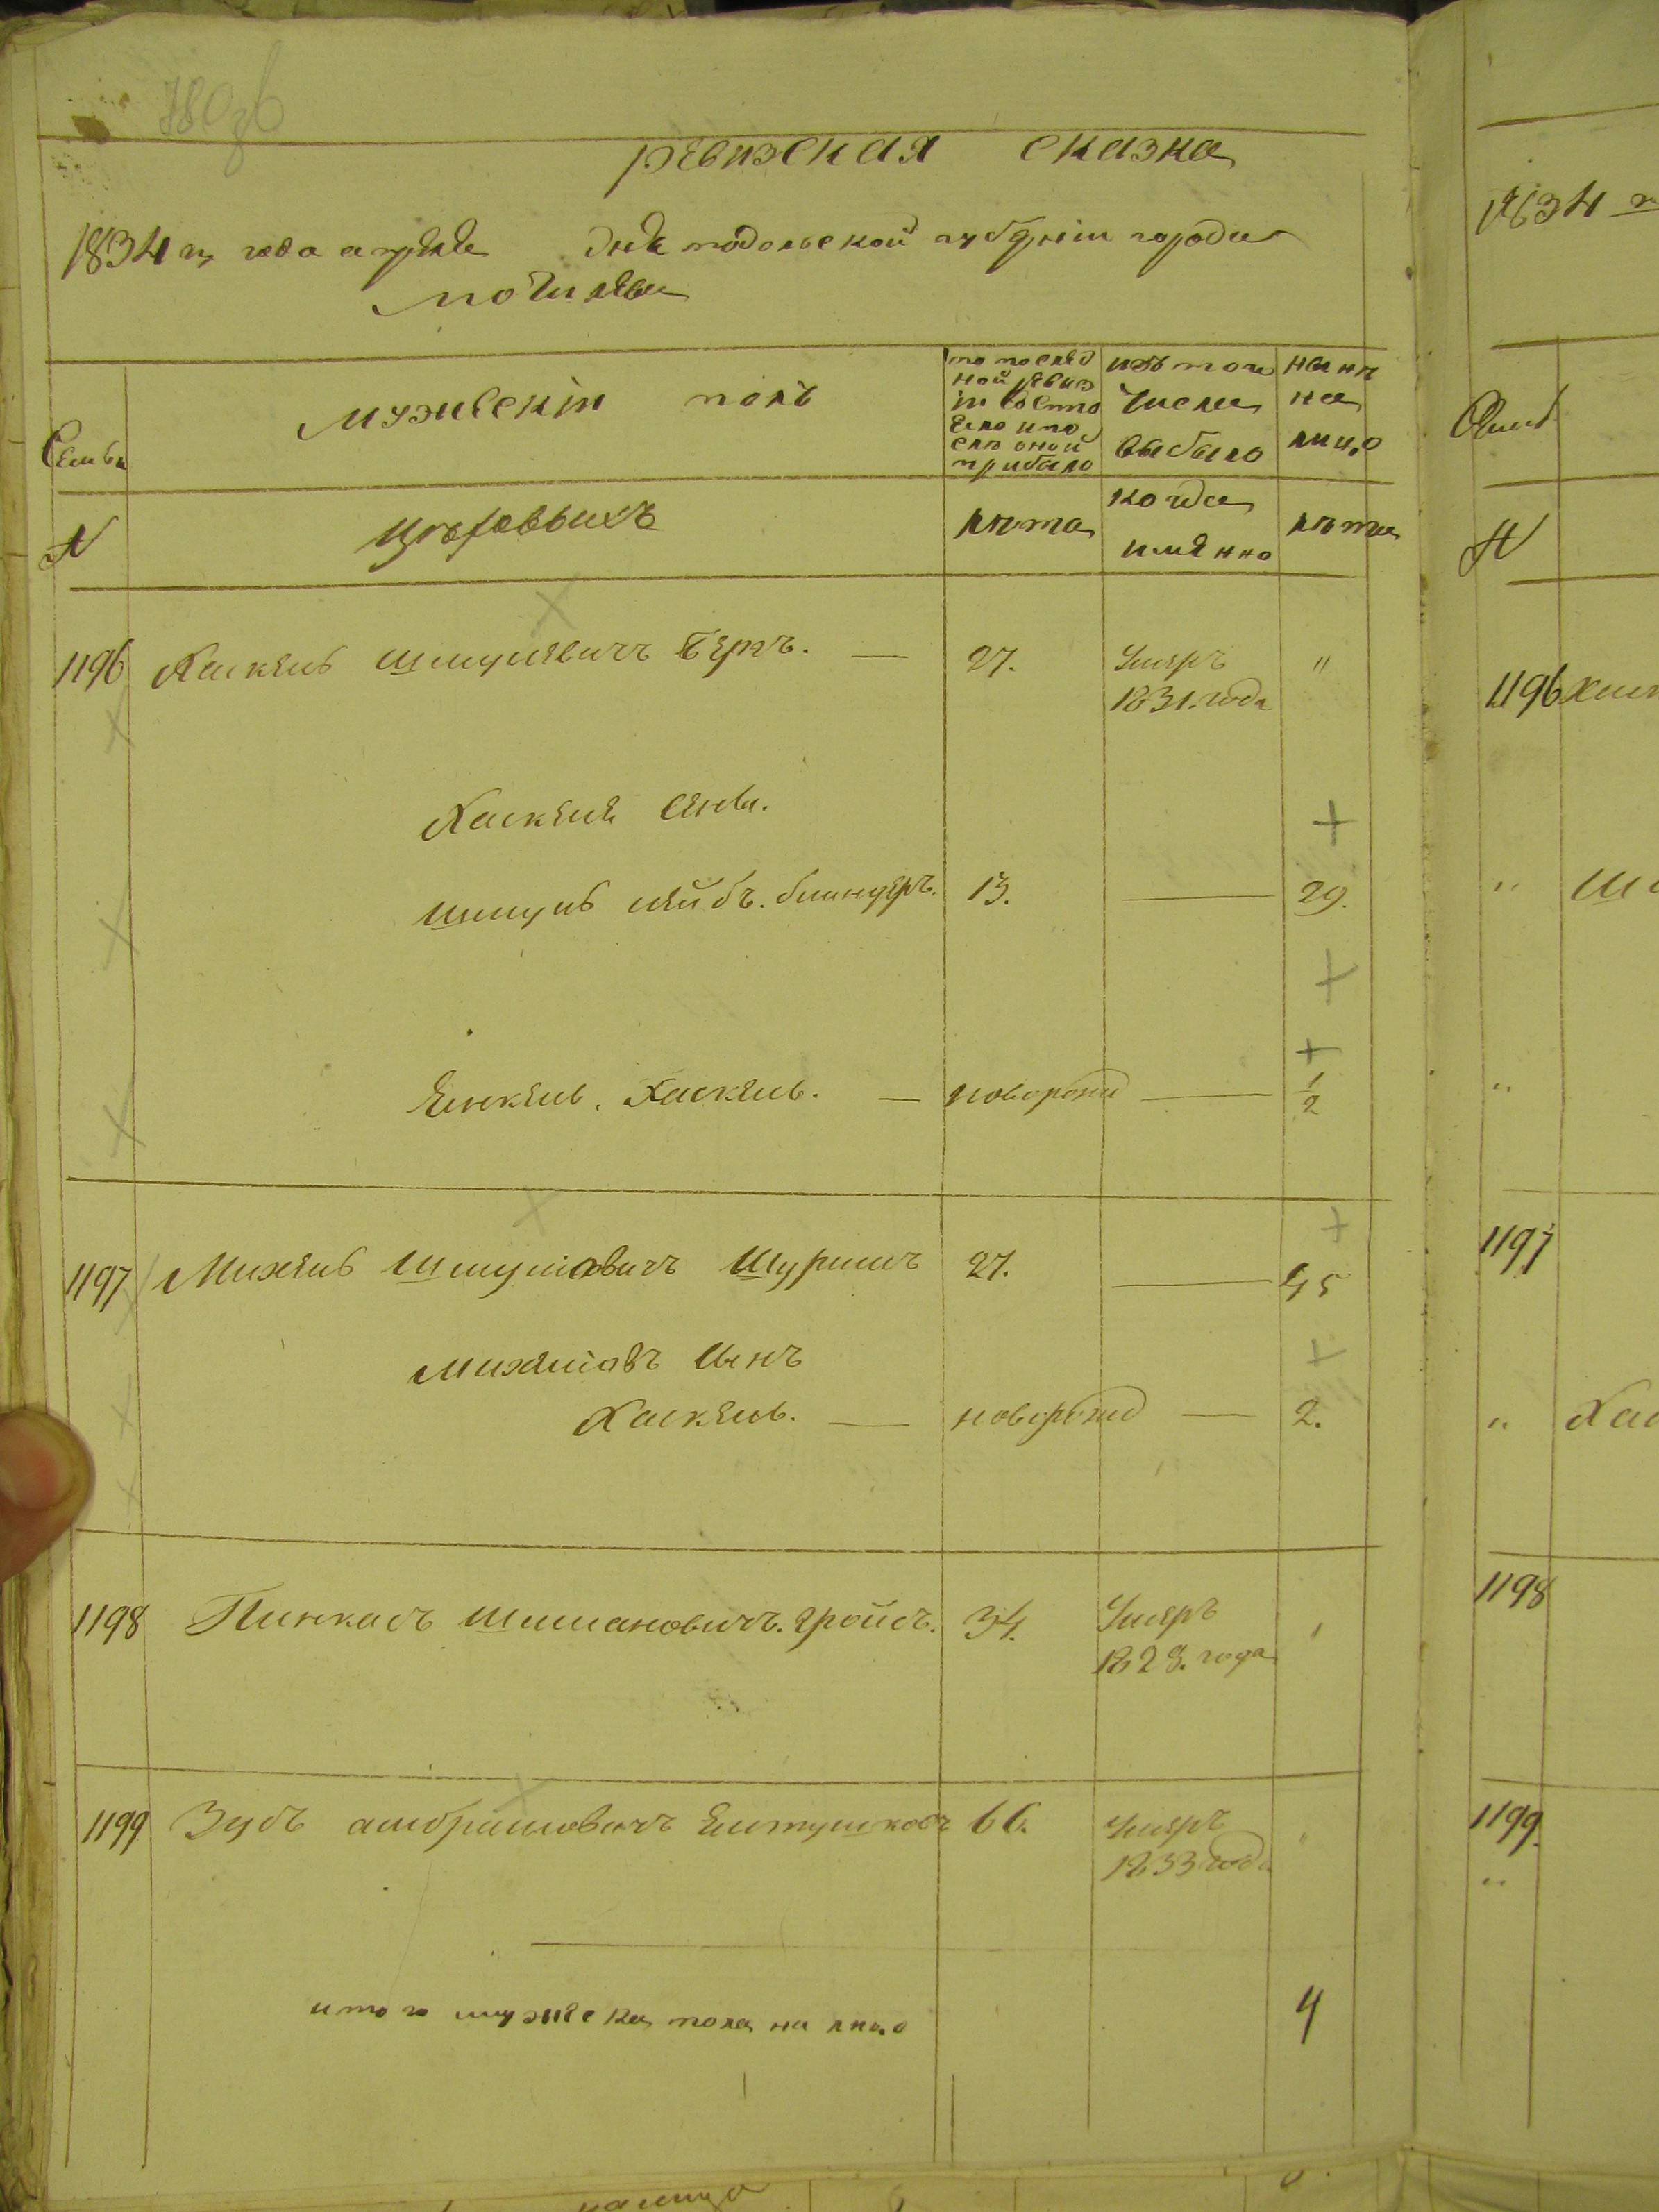 780 об
ревизская сказка
1834 го года апреля дня подольской губернии города
могилева
Семьи
мужескiй полъ
по послед
ной ревиз
iи состо
яло и по
слъ оной
прибыло
изъ того
числа
выбыло
нынъ
на
лицо
N
лъта
когда
имянно
лъта
1196 Хаскель Шмулевичъ Беръ. — 27. Умеръ "
1831. года
Хаскеля Сыны.
Шмуль Лейбъ. 13. — 29.
Янкель. Хаскель. — новорожд — 1/2
1197 Михель Шмулiовичъ 27. — 45
Михелiовъ Сынъ
Хаскель. — новорожд — 2.
1198 Пинкасъ Шимановичъ. Гройсъ. 34. Умеръ
1828. года
1199 Зусь Умеръ "
1833 года
итого мужеска пола на лицо 4
1834
Семьи
N
1196
" Ш
"
1197
" Хас
1198
1199
"